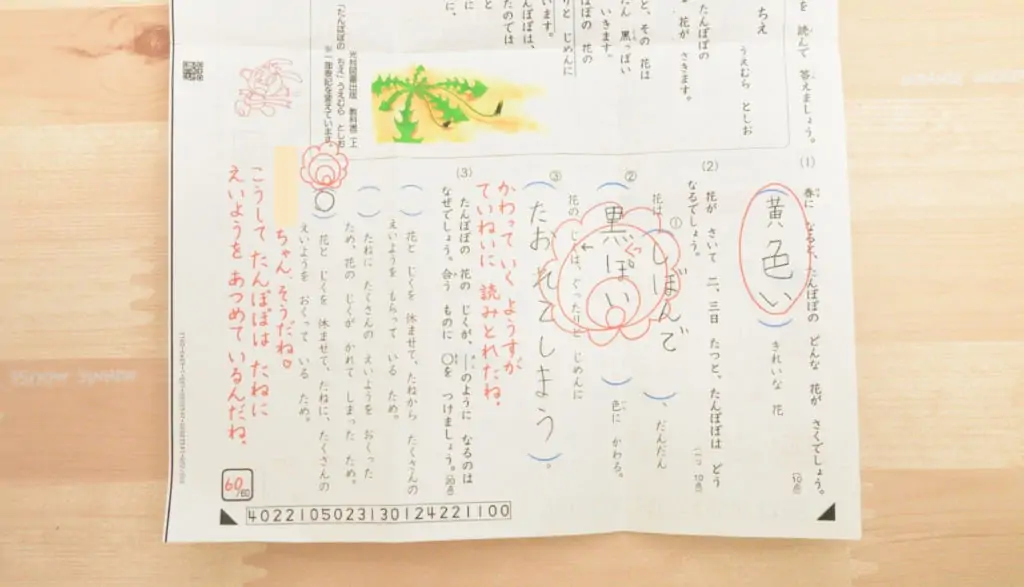 を 読んで 答えましょう。
ちえ
うえむら としお
たんぽぽの
花が さきます。
と、その 花は
いきます。
たん 黒っぽい
ぽぽの 花の
りと じめんに
います。
んぽぽは、
たのでは
と
に
に、
「たんぽぽの ちえ」うえむら としお
光村図書出版 教科書二上
※一部表記を変えています。
(1) 春に なると、たんぽぽの どんな 花が さくでしょう。
(10点)
黄色い
きれいな 花
(2) 花が さいて 二、三日 たつと、たんぽぽは どう
なるでしょう。
(一つ 10点)
① 花は しぼんで 、だんだん
② 黒ぽい 色に かわる。
っ
③ 花の じくは、ぐったりと じめんに
たおれてしまう 。
かわって いく ようすが
ていねいに 読みとれたね。
(3) たんぽぽの 花の じくが、―のように なるのは
なぜでしょう。合う ものに ○を つけましょう。
(20点)
花と じくを 休ませて、たねから たくさんの
えいようを もらって いる ため。
たねに たくさんの えいようを おくった
ため、花の じくが かれて しまった ため。
○ 花と じくを 休ませて、たねに、たくさんの
えいようを おくって いる ため。
ちゃん、そうだね。
こうして たんぽぽは たねに
えいようを あつめて いるんだね。
60/60
4022105023130124221100